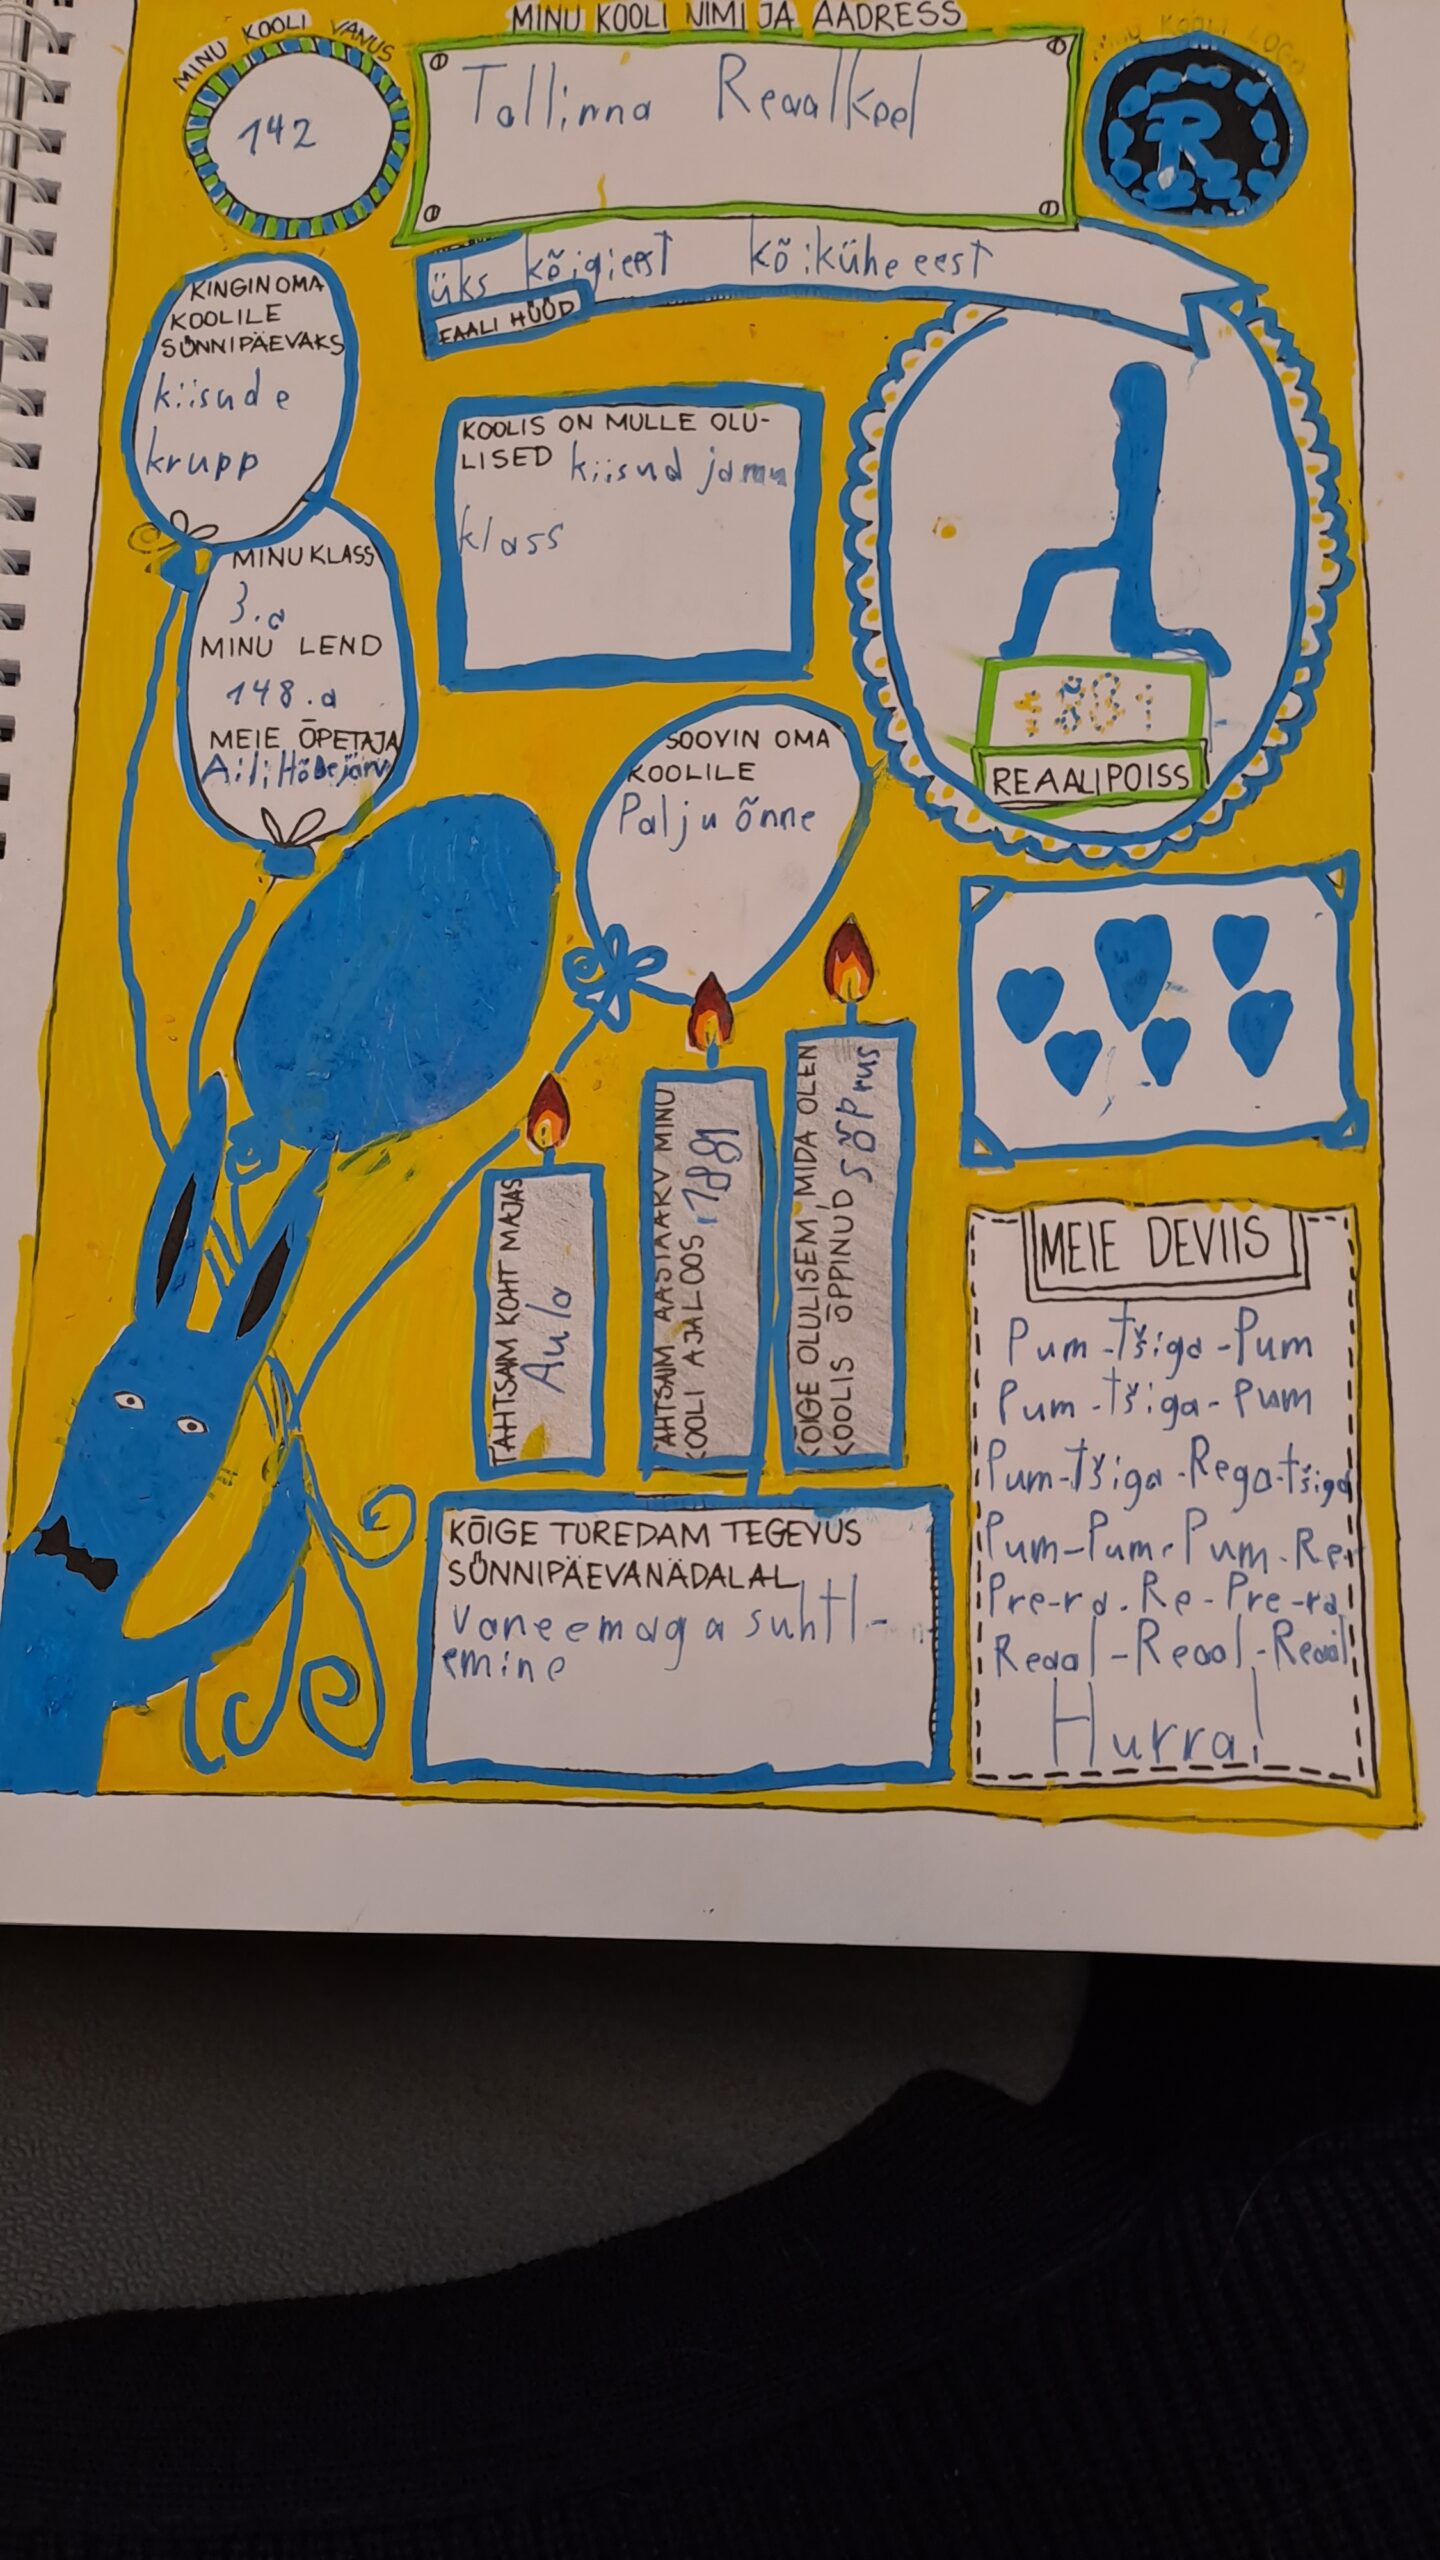 MINU KOOLI VANUS
142
MINU KOOLI NIMI JA AADRESS
Tallinna Reaalkool
MINU KOOLI LOGO
R
üks kõigieest kõikühe eest
EAALI HÜÜD
KINGIN OMA
KOOLILE
SÜNNIPÄEVAKS
kiisude
krupp
KOOLIS ON MULLE OLU-
LISED kiisud ja mu
klass
MINU KLASS
3.a
MINU LEND
148.a
MEIE ÕPETAJA
Aili Hõbejärv
1881
REAALIPOISS
SOOVIN OMA
KOOLILE
Palju õnne
TÄHTSAIM KOHT MAJAS
Aula
ÄHTSAIM AASTAARV MINU
KOOLI AJALOOS 1881
KÕIGE OLULISEM, MIDA OLEN
KOOLIS ÕPPINUD sõprus
MEIE DEVIIS
Pum-tšiga-Pum
Pum-tšiga-Pum
Pum-tšiga-Rega-tšiga
Pum-Pum-Pum-Re
Pre-ra.Re-Pre-ra
Reaal-Reaal-Reaal
Hurra!
KÕIGE TOREDAM TEGEVUS
SÜNNIPÄEVANÄDALAL
vaneemaga suhtl-
emine